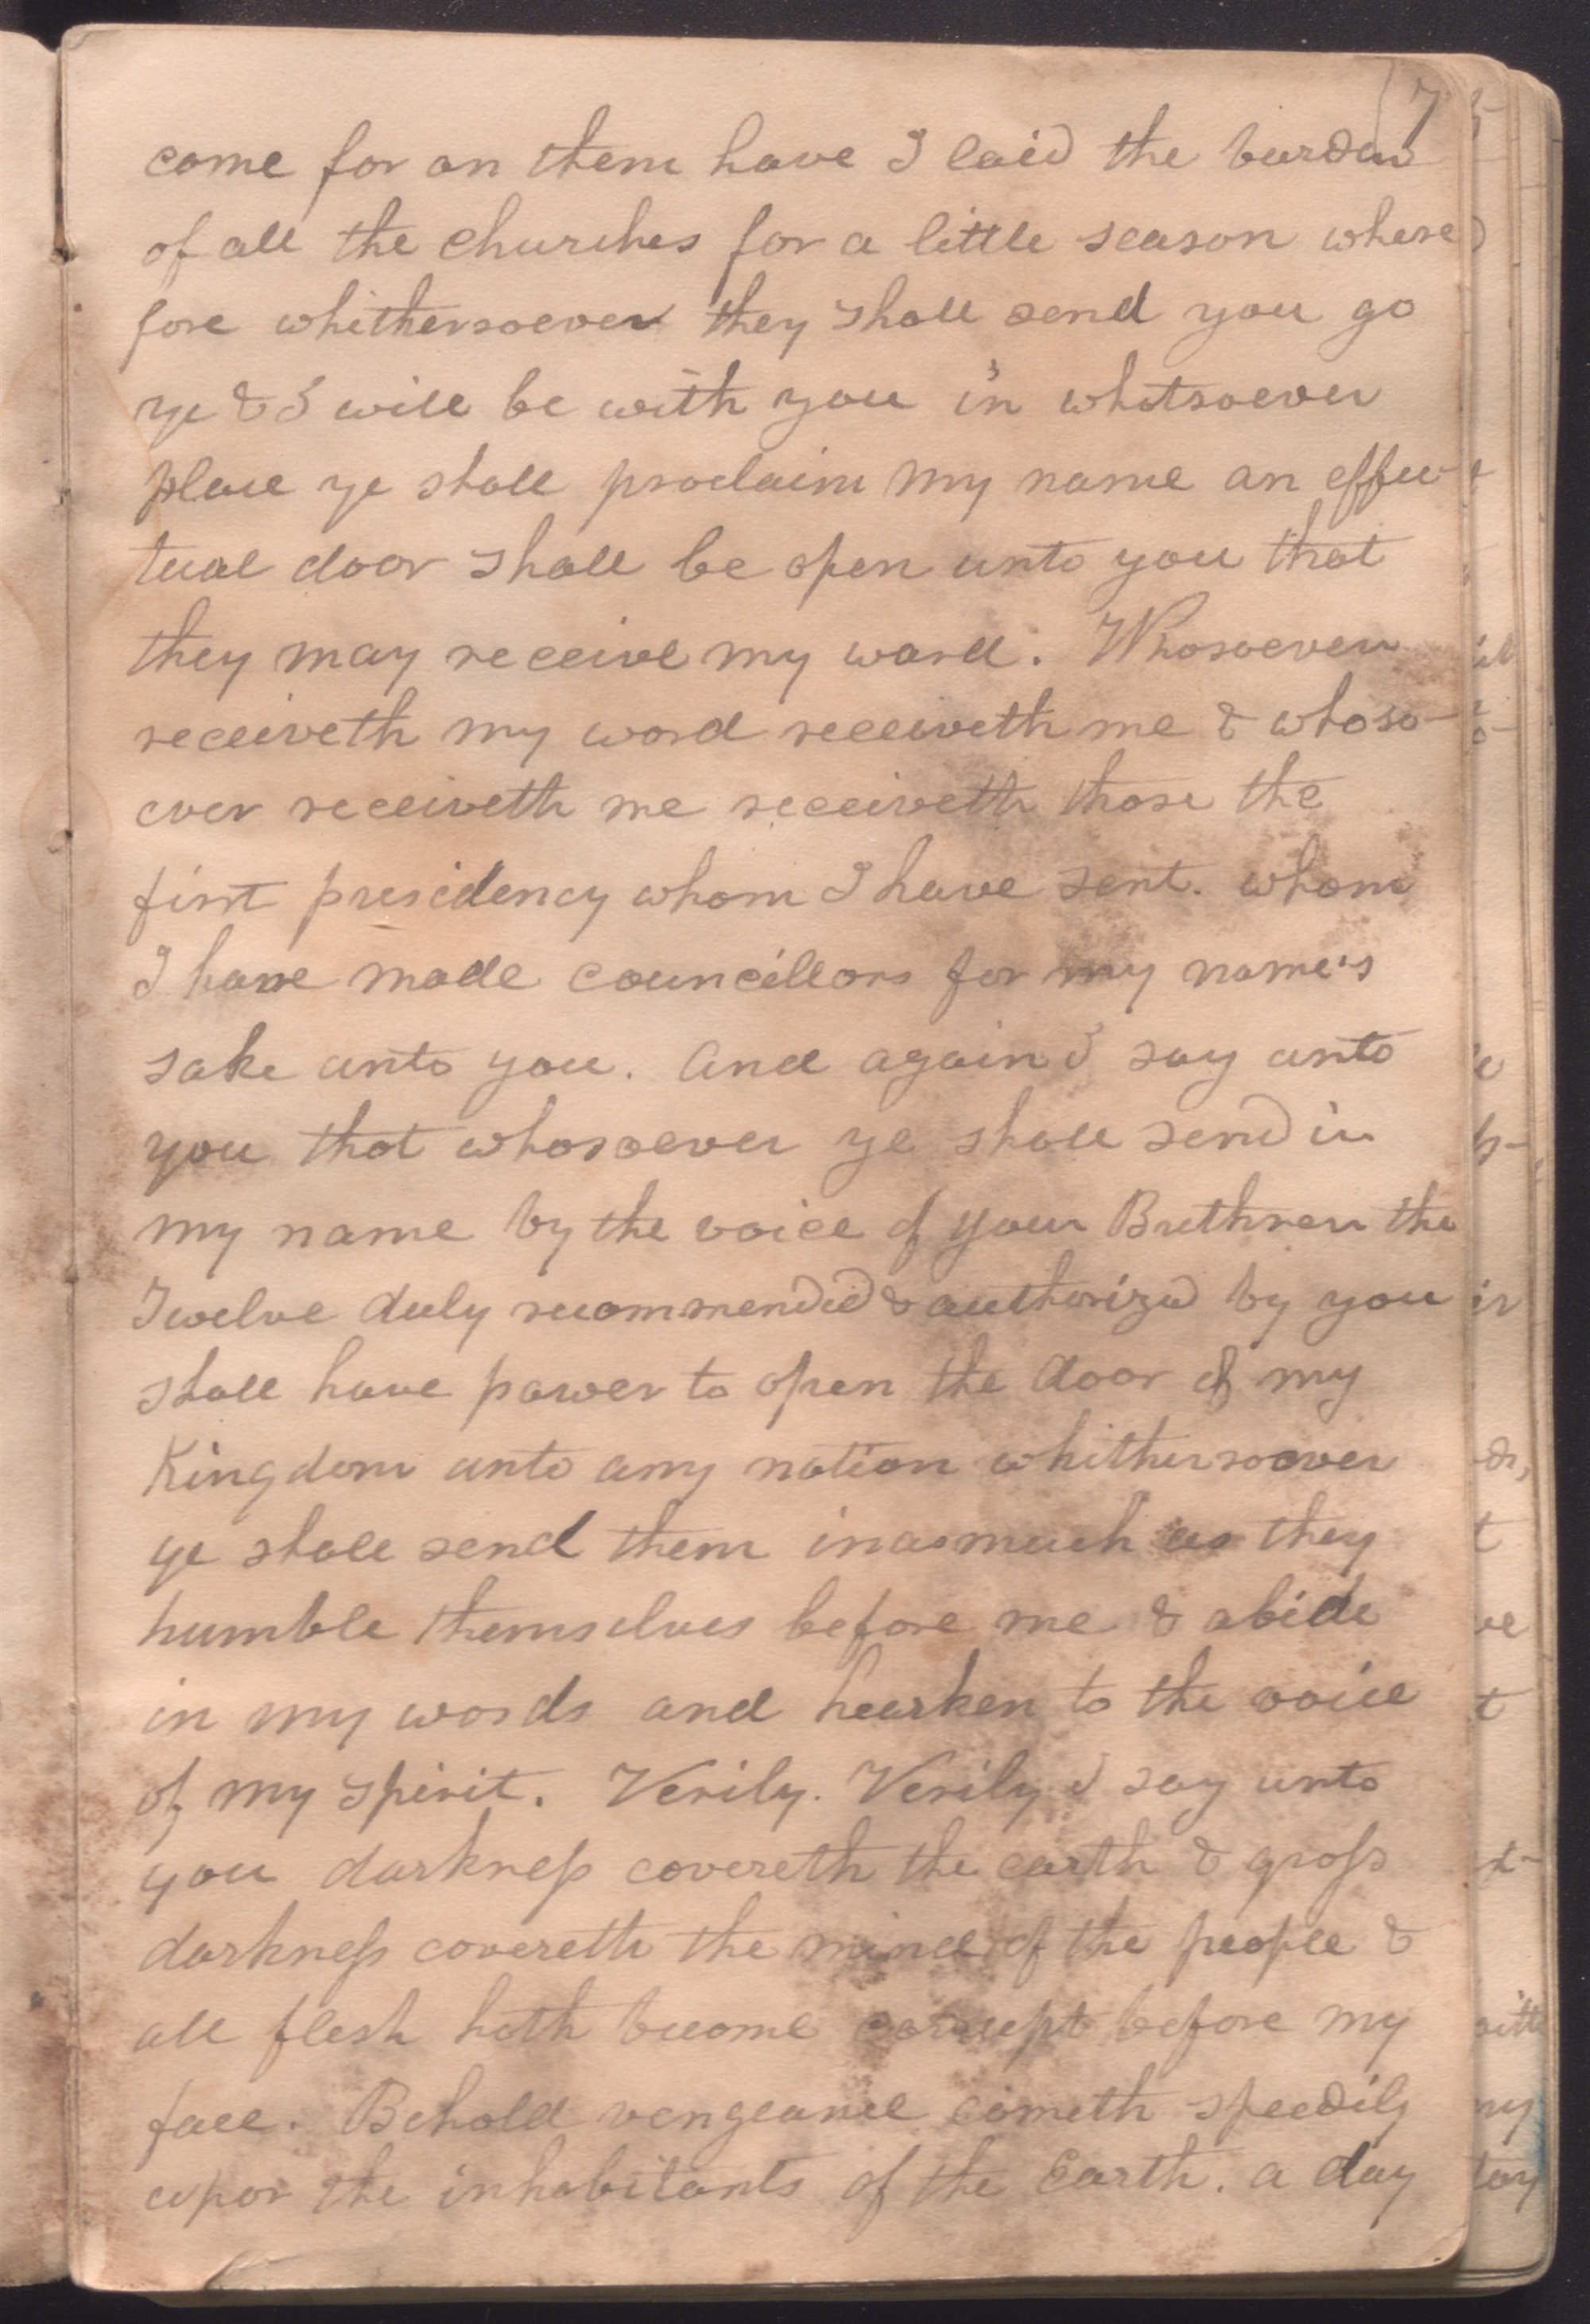 7
come for on them have I laid the burden
of all the churches for a little season where
fore whithersoever they shall send you go
ye & I will be with you in whatsoever
place ye shall proclaim my name an effec-
tual door shall be open unto you that
they may receive my word. Whosoever
receiveth my word receiveth me & whoso-
ever receiveth me receiveth those the
first presidency whom I have sent. whom
I have made councillors for my name's
sake unto you. And again I say unto
you that whosoever ye shall send in
my name by the voice of your Brethren the
Twelve duly recommended & authorized by you
shall have power to open the door of my
Kingdom unto any nation whithersoever
ye shall send them inasmuch as they
humble themselves before me & abide
in my words and hearken to the voice
of my spirit. Verily. Verily I say unto
you darkness covereth the earth & gross
darkness covereth the mind of the people &
all flesh hath become corrupt before my
face. Behold vengeance cometh speedily
upon the inhabitants of the Earth. a day